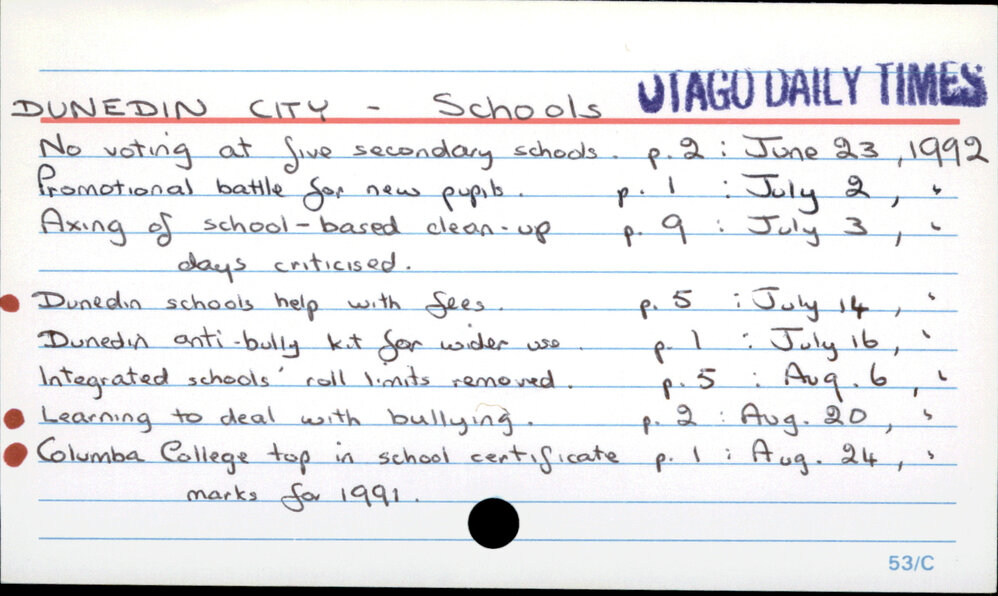 DUNEDIN CITY - Schools OTAGO DAILY TIMES
No voting at five secondary schools. p. 2 : June 23, 1992
Promotional battle for new pupils. p. 1 : July 2, "
Axing of school-based clean-up p. 9 : July 3, "
days criticised.
Dunedin schools help with fees. p. 5 : July 14, "
Dunedin anti-bully kit for wider use. p. 1 : July 16, "
Integrated schools' roll limits removed. p. 5 : Aug. 6, "
Learning to deal with bullying. p. 2 : Aug. 20, "
Columba College top in school certificate p. 1 : Aug. 24, "
marks for 1991.
53/C